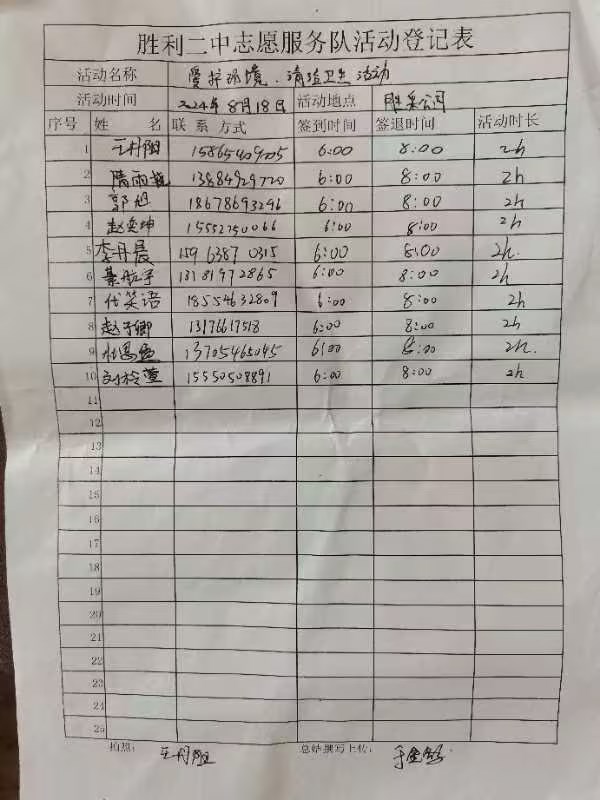 胜利二中志愿服务队活动登记表
活动名称 爱护环境、清洁卫生活动
活动时间 2024年8月18日 活动地点 胜采公园
序号 姓 名 联系方式 签到时间 签退时间 活动时长
1 王丹阳 15865409705 6:00 8:00 2h
2 隋雨 13884929720 6:00 8:00 2h
3 郭旭 18678693296 6:00 8:00 2h
4 赵奕坤 15552750066 6:00 8:00 2h
5 李丹晨 15963870315 6:00 8:00 2h.
6 綦航宇 13181972865 6:00 8:00 2h
7 代笑语 18554632809 6:00 8:00 2h
8 赵子卿 13176617518 6:00 8:00 2h
9 杜恩 13705465045 6:00 8:00 2h.
10 刘 萱 15550508891 6:00 8:00 2h
11
12
13
14
15
16
17
18
19
20
21
22
23
24
25
拍照： 王丹阳 总结撰写上传：